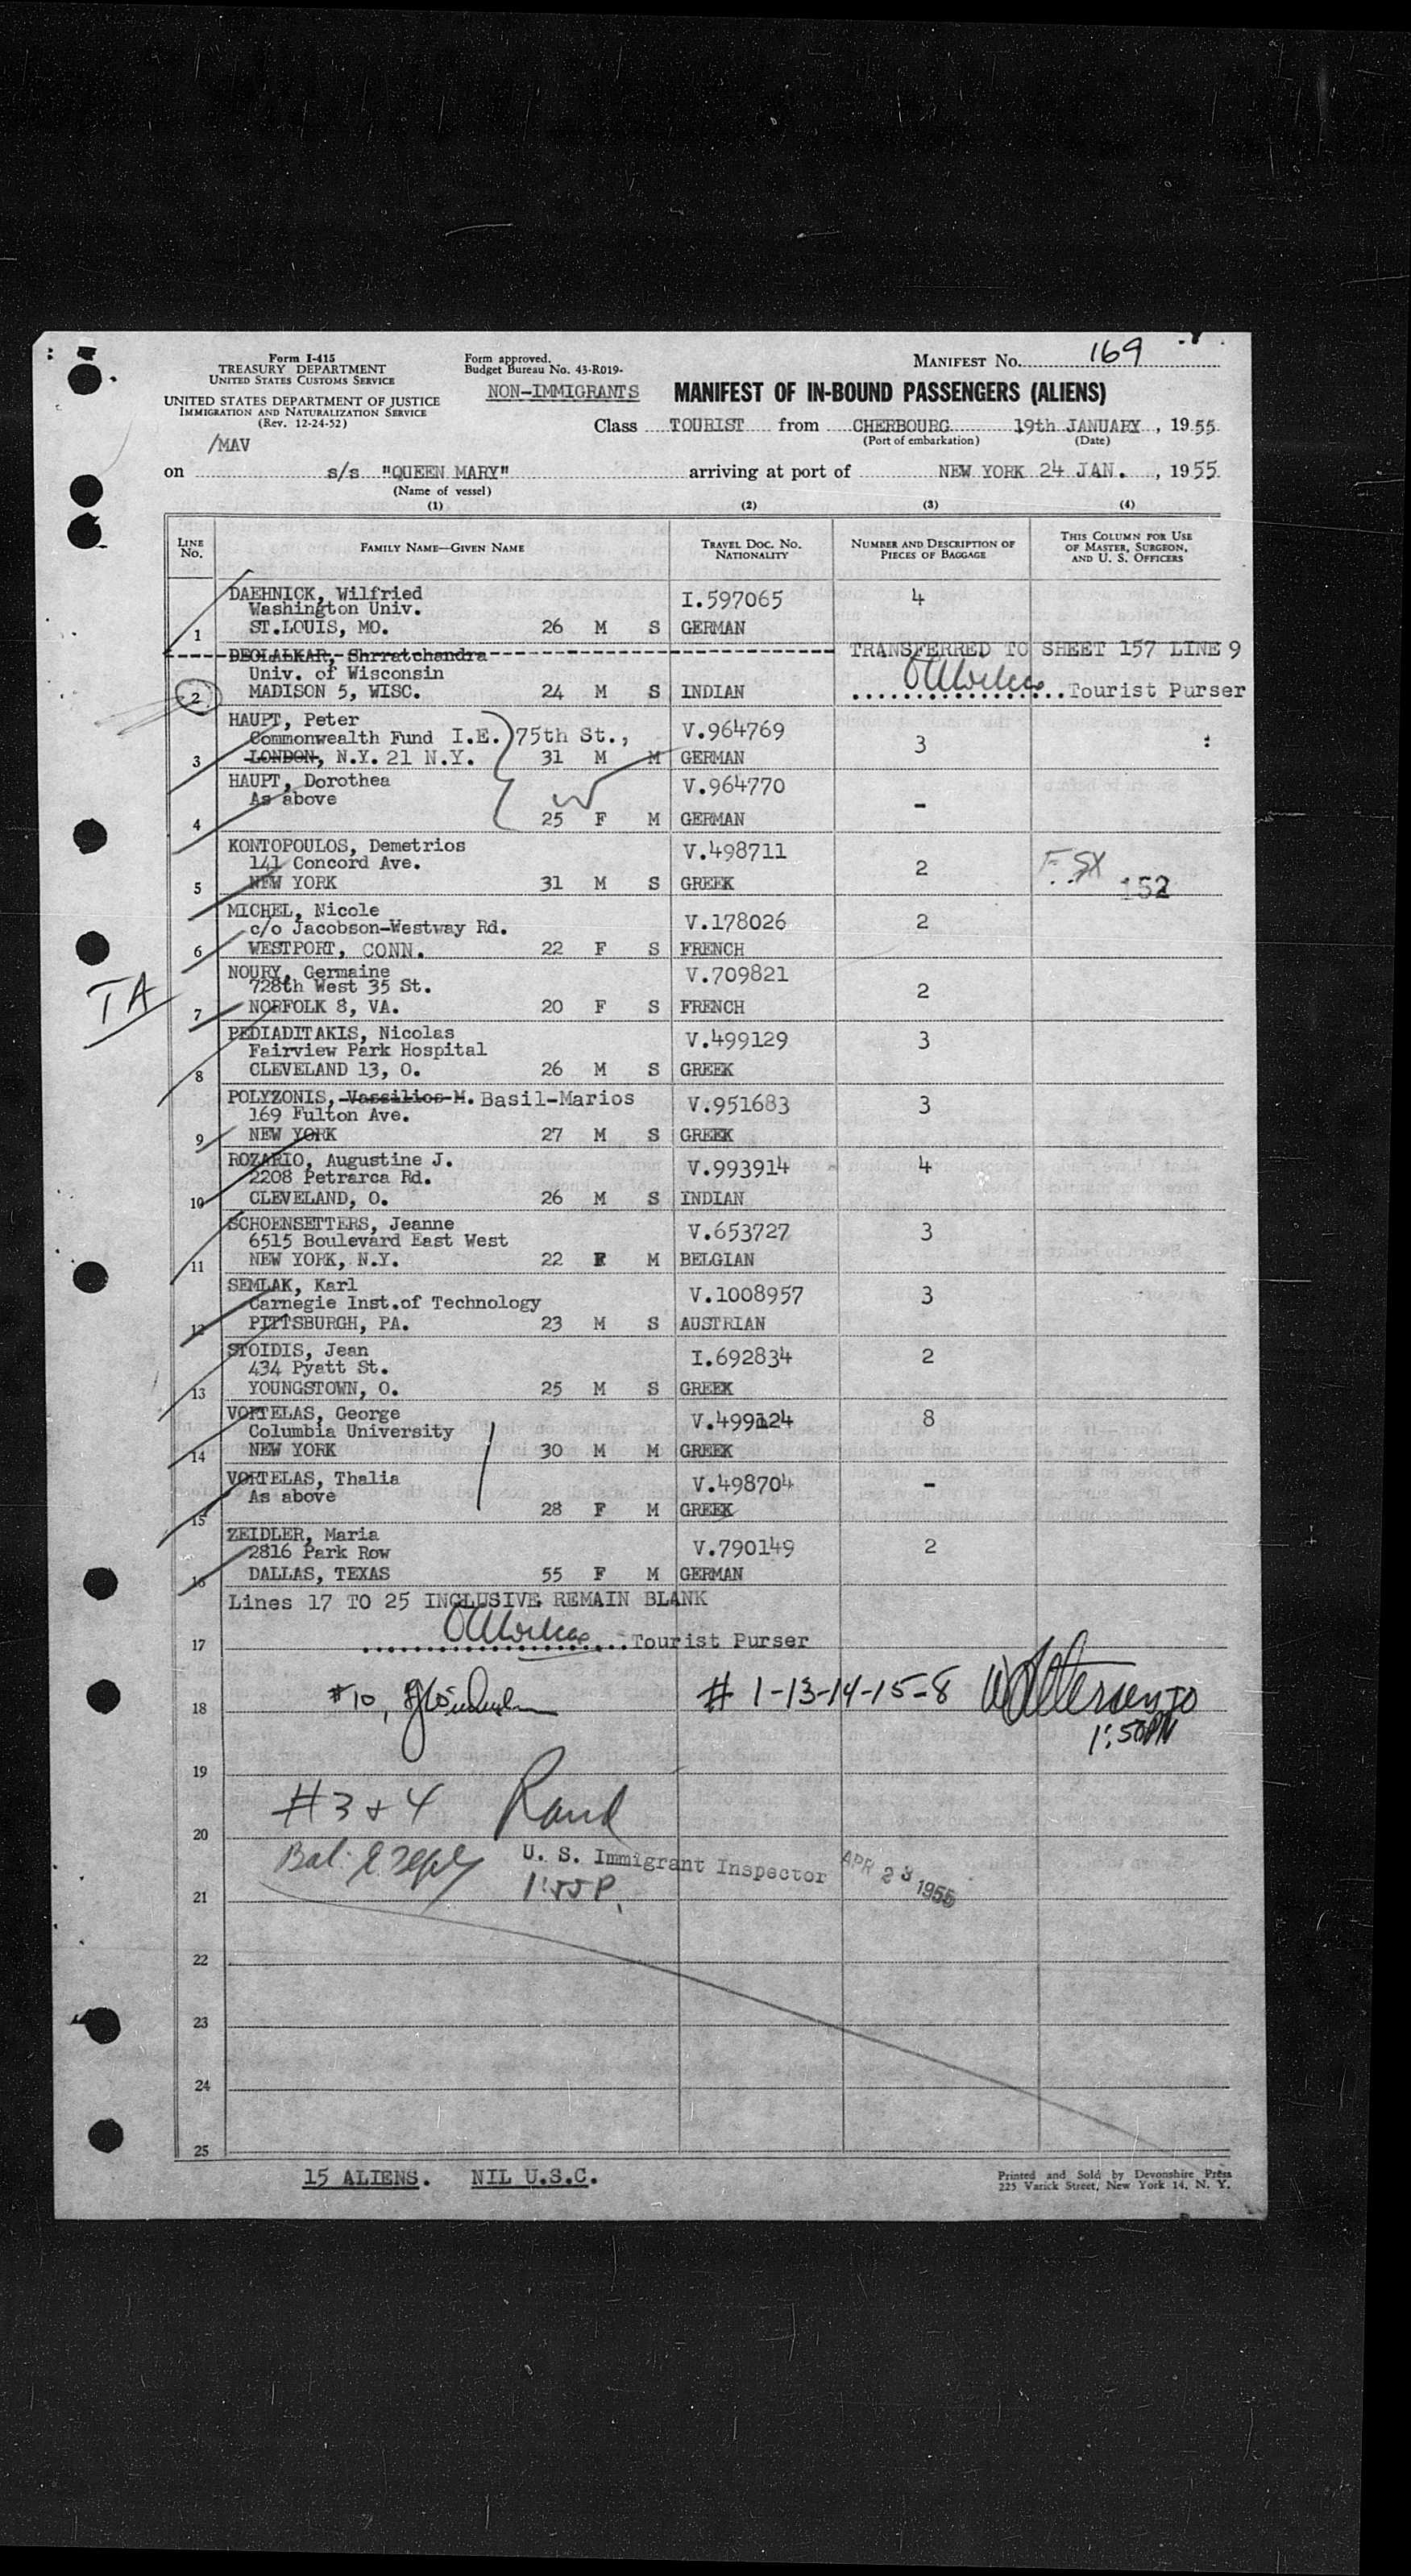 Form I-415
TREASURY DEPARTMENT
UNITED STATES CUSTOMS SERVICE
UNITED STATES DEPARTMENT OF JUSTICE
IMMIGRATION AND NATURALIZATION SERVICE
(Rev. 12-24-52)
/MAV
Form approved.
Budget Bureau No. 43-R019-
NON-IMMIGRANTS
MANIFEST NO. 169
MANIFEST OF IN-BOUND PASSENGERS (ALIENS)
Class TOURIST from CHERBOURG 19th JANUARY, 1955
(Port of embarkation) (Date)
on s/s "QUEEN MARY" arriving at port of NEW YORK 24 JAN., 1955
(Name of vessel)
(1) (2) (3) (4)
LINE NO. FAMILY NAME—GIVEN NAME TRAVEL DOC. NO. NATIONALITY NUMBER AND DESCRIPTION OF PIECES OF BAGGAGE THIS COLUMN FOR USE OF MASTER, SURGEON, AND U. S. OFFICERS
DAEHNICK, Wilfried I.597065 4
Washington Univ.
1 ST.LOUIS, MO. 26 M S GERMAN
DEOLALKAR, Shrratchandra TRANSFERRED TO SHEET 157 LINE 9
Univ. of Wisconsin
2 MADISON 5, WISC. 24 M S INDIAN Tourist Purser
HAUPT, Peter V.964769
Commonwealth Fund I.E. 75th St., 3
3 LONDON, N.Y. 21 N.Y. 31 M M GERMAN
HAUPT, Dorothea V.964770
As above -
4 25 F M GERMAN
KONTOPOULOS, Demetrios V.498711
141 Concord Ave. 2
5 NEW YORK 31 M S GREEK 152
MICHEL, Nicole V.178026 2
c/o Jacobson-Westway Rd.
6 WESTPORT, CONN. 22 F S FRENCH
TA
NOURY, Germaine V.709821
728th West 35 St. 2
7 NORFOLK 8, VA. 20 F S FRENCH
PEDIADITAKIS, Nicolas V.499129 3
Fairview Park Hospital
8 CLEVELAND 13, O. 26 M S GREEK
POLYZONIS, Vassilios M. Basil-Marios V.951683 3
169 Fulton Ave.
9 NEW YORK 27 M S GREEK
ROZARIO, Augustine J. V.993914 4
2208 Petrarca Rd.
10 CLEVELAND, O. 26 M S INDIAN
SCHOENSETTERS, Jeanne V.653727 3
6515 Boulevard East West
11 NEW YORK, N.Y. 22 F M BELGIAN
SEMLAK, Karl V.1008957 3
Carnegie Inst.of Technology
12 PITTSBURGH, PA. 23 M S AUSTRIAN
STOIDIS, Jean I.692834 2
434 Pyatt St.
13 YOUNGSTOWN, O. 25 M S GREEK
VORTELAS, George V.499124 8
Columbia University
14 NEW YORK 30 M M GREEK
VORTELAS, Thalia V.498704 -
As above
15 28 F M GREEK
ZEIDLER, Maria V.790149 2
2816 Park Row
16 DALLAS, TEXAS 55 F M GERMAN
Lines 17 TO 25 INCLUSIVE REMAIN BLANK
17 Tourist Purser
18 #10, # 1-13-14-15-8
1:50PM
19
#3 & 4 Rand
20
Bal. U. S. Immigrant Inspector APR 23 1955
21 1:55 P.
22
23
24
25
15 ALIENS. NIL U.S.C.
Printed and Sold by Devonshire Press
225 Varick Street, New York 14, N. Y.